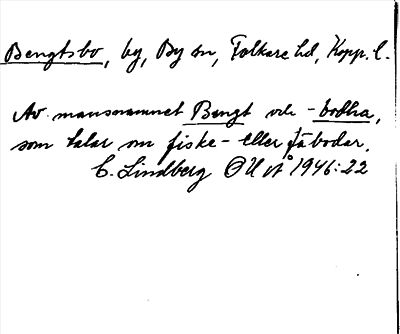 Bengtsbo, by, By sn, Folkare hd, Kopp. l.
Av mansnamnet Bengt och -bodha,
som talar om fiske- eller fäbodar.
C. Lindberg ÖU st 1946:22